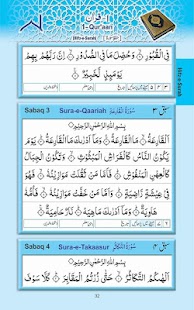 ١- قرآن
1- Qur'aan
(Hifz-e-Surah)
Hifz-e-Surah
فِي الْقُبُوْرِ ۙ وَحُصِّلَ مَا فِي الصُّدُوْرِ ۙ اِنَّ رَبَّهُمْ بِهِمْ
يَوْمَئِذٍ لَّخَبِيْرٌ
Sabaq 3 Sura-e-Qaariah سُوْرَةُ الْقَارِعَةِ سبق ۳
بِسْمِ اللهِ الرَّحْمٰنِ الرَّحِيْمِ
اَلْقَارِعَةُ ۙ مَا الْقَارِعَةُ ۚ وَمَآ اَدْرٰىكَ مَا الْقَارِعَةُ ؕ يَوْمَ
يَكُوْنُ النَّاسُ كَالْفَرَاشِ الْمَبْثُوْثِ ۙ وَتَكُوْنُ الْجِبَالُ
كَالْعِهْنِ الْمَنْفُوْشِ ؕ فَاَمَّا مَنْ ثَقُلَتْ مَوَازِيْنُهٗ ۙ فَهُوَ
فِيْ عِيْشَةٍ رَّاضِيَةٍ ؕ وَاَمَّا مَنْ خَفَّتْ مَوَازِيْنُهٗ ۙ فَاُمُّهٗ
هَاوِيَةٌ ؕ وَمَآ اَدْرٰىكَ مَا هِيَهْ ؕ نَارٌ حَامِيَةٌ
Sabaq 4 Sura-e-Takaasur سُوْرَةُ التَّكَاثُرِ سبق ۴
بِسْمِ اللهِ الرَّحْمٰنِ الرَّحِيْمِ
اَلْهٰىكُمُ التَّكَاثُرُ ۙ حَتّٰى زُرْتُمُ الْمَقَابِرَ ؕ كَلَّا سَوْفَ
32